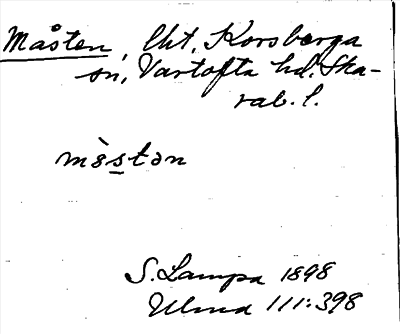 Måsten, lht, Korsberga
sn, Vartofta hd. Ska-
rab. l.
mɵ̀stən
S. Lampa 1898
Ulma 111:398